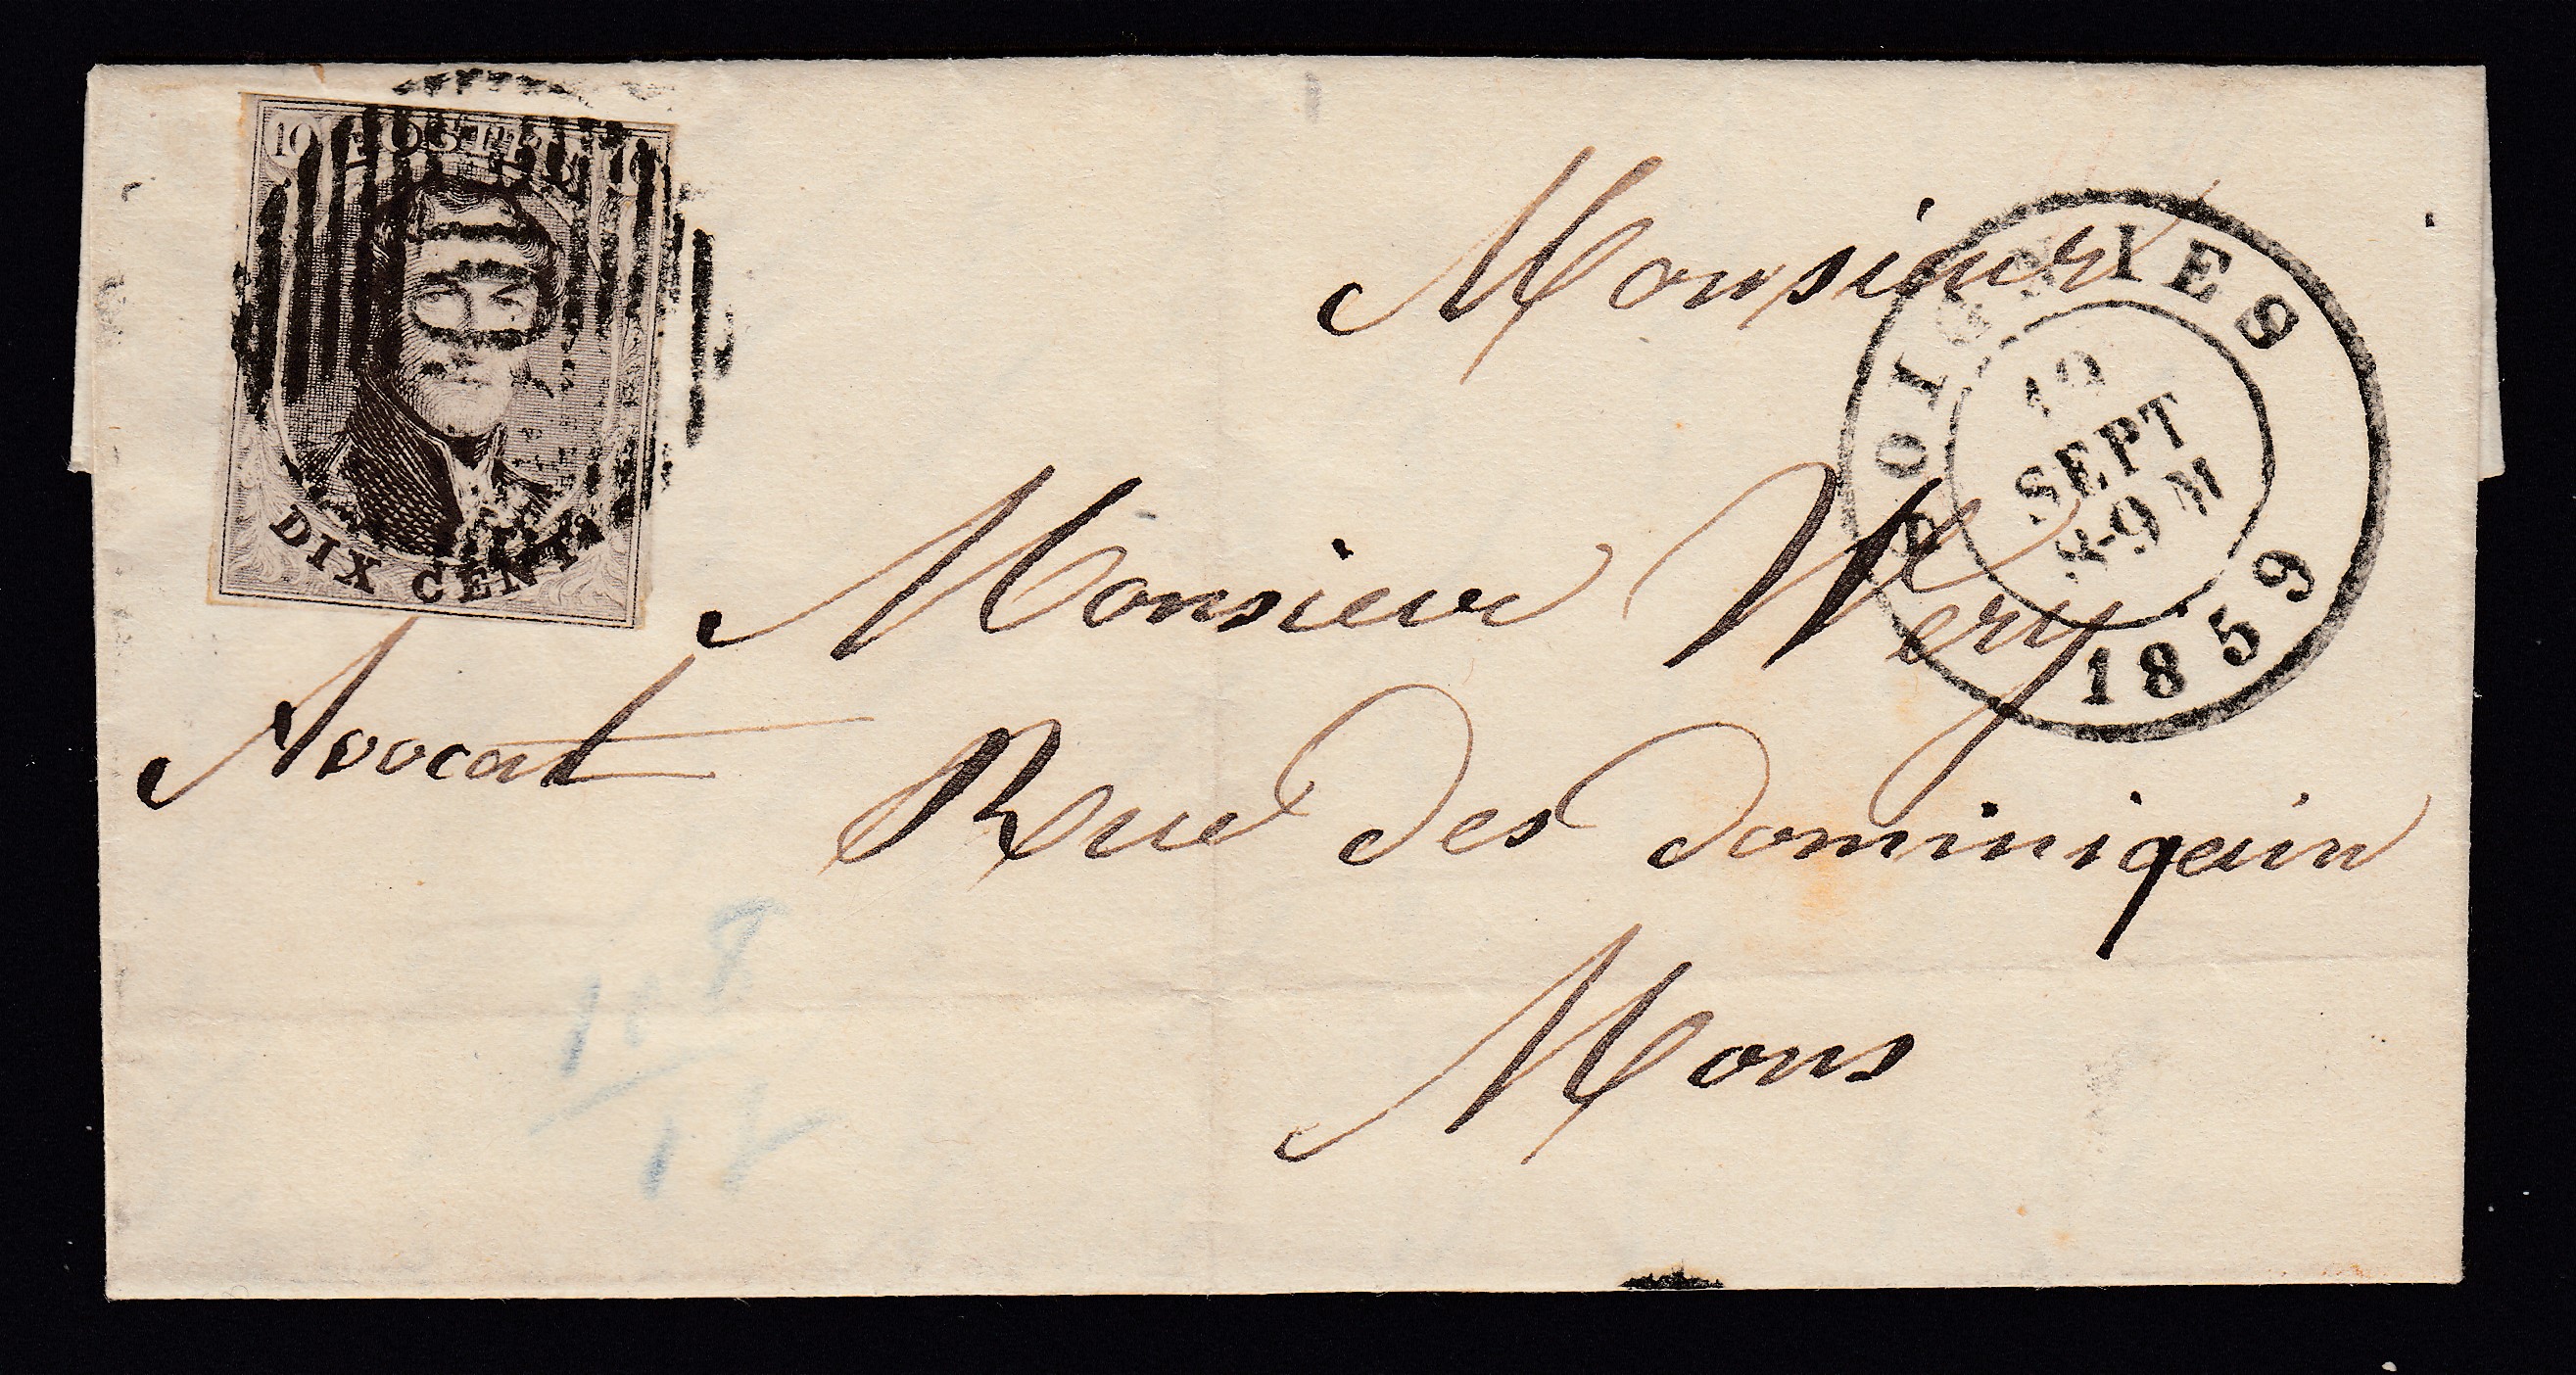 10 POSTES 10
DIX CENT.
Monsieur
SOIGNIES
SEPT
8-9 M
1859
Monsieur Wery
Avocat
Rue des dominiquin
Mons